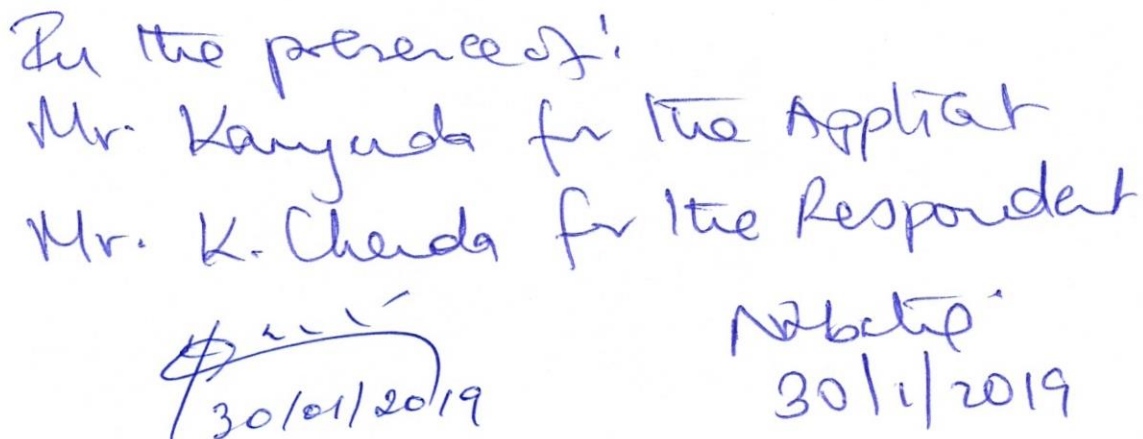 In the presence of:
Mr. Kanyuda for the Applicant
Mr. K. Chenda for the Respondent
30/01/2019
30/1/2019